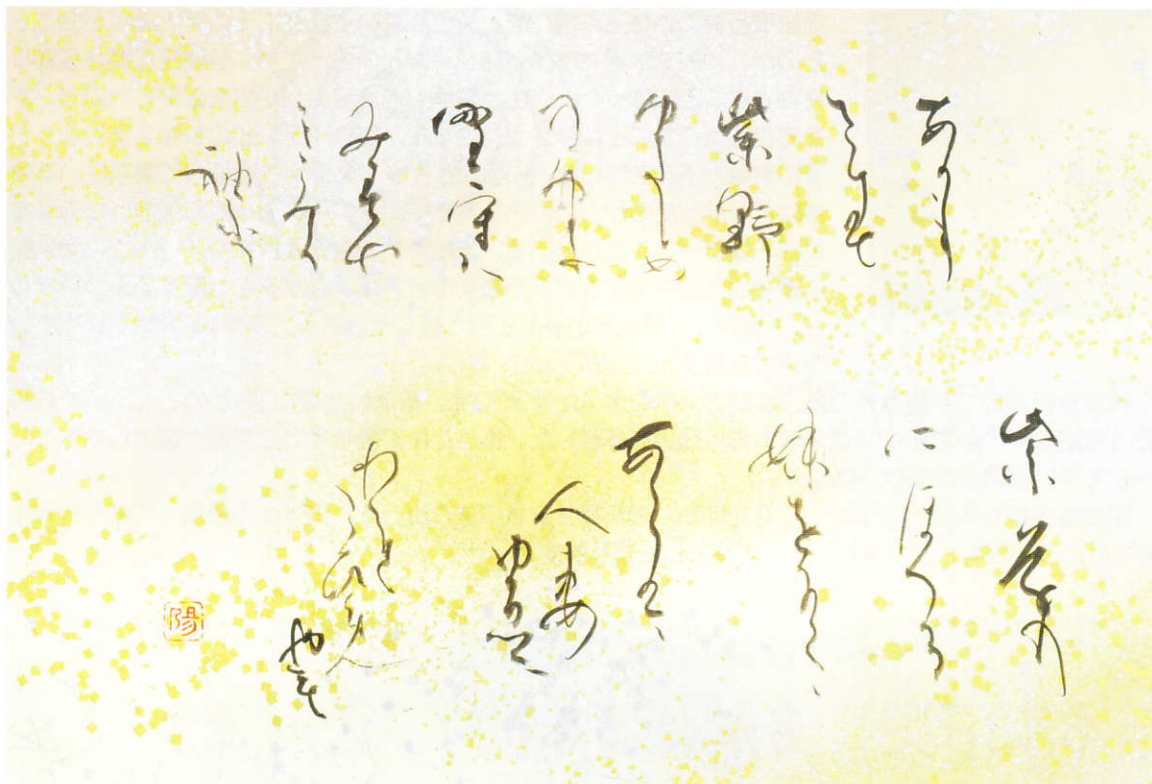 あかね
さす
紫野
ゆきしめ
のゆき
野守は
みずや
君が
袖ふる
紫草の
にほへる
妹をにくく
あらば
人妻
ゆゑに
われこひめ
やも
陽